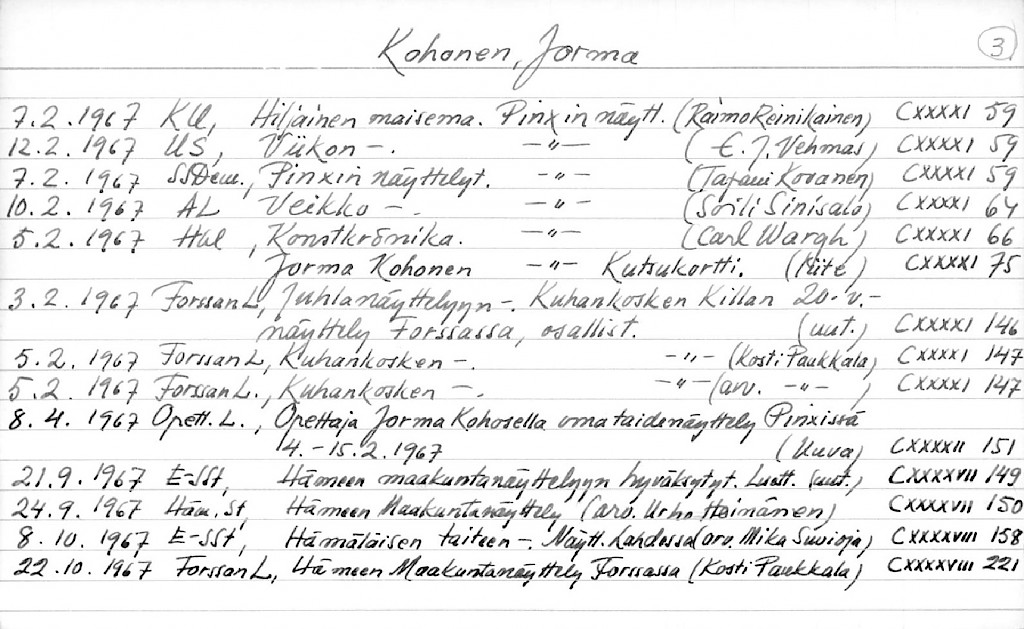 Kohonen, Jorma
3
7.2.1967 KU, Hiljainen maisema. Pinxin näytt. (Raimo Reinikainen) CXXXXI 59
12.2.1967 US, Viikon -. -"- (E.J. Vehmas) CXXXXI 59
7.2.1967 SSDem., Pinxin näyttelyt. -"- (Tapani Kovanen) CXXXXI 59
10.2.1967 AL Veikko -. -"- (Soili Sinisalo) CXXXXI 64
5.2.1967 Hbl, Konstkrönika. -"- (Carl Wargh) CXXXXI 66
Jorma Kohonen -"- Kutsukortti. (liite) CXXXXI 75
3.2.1967 Forssan L, Juhlanäyttelyyn -. Kuhankosken Killan 20-v.-
näyttely Forssassa, osallist. (uut.) CXXXXI 146
5.2.1967 Forssan L, Kuhankosken -. -"- (Kosti Paukkala) CXXXXI 147
5.2.1967 Forssan L., Kuhankosken -. -"- (arv. -"- ) CXXXXI 147
8.4.1967 Opett. L., Opettaja Jorma Kohosella oma taidenäyttely Pinxissä
4.-15.2.1967 (kuva) CXXXXII 151
21.9.1967 E-SSt, Hämeen maakuntanäyttelyyn hyväksytyt. Luett. (uut.) CXXXXVII 149
24.9.1967 Häm. St, Hämeen Maakuntanäyttely (arv. Urho Heinänen) CXXXXVII 150
8.10.1967 E-SSt, Hämäläisen taiteen -. Näytt. Lahdessa (arv. Mika Suvioja) CXXXXVIII 158
22.10.1967 Forssan L, Hämeen Maakuntanäyttely Forssassa (Kosti Paukkala) CXXXXVIII 221